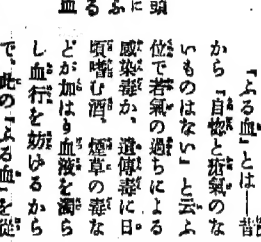 頭にふる血
「ふる血」とは――昔
から「自惚と瘡氣のな
いものはない」と云ふ
位で若氣の過ちによる
感染毒か、遺傳毒に日
頃嗜む酒、煙草の毒な
どが加はり血液を濁ら
し血行を妨げるから
で、此の「ふる血」を從